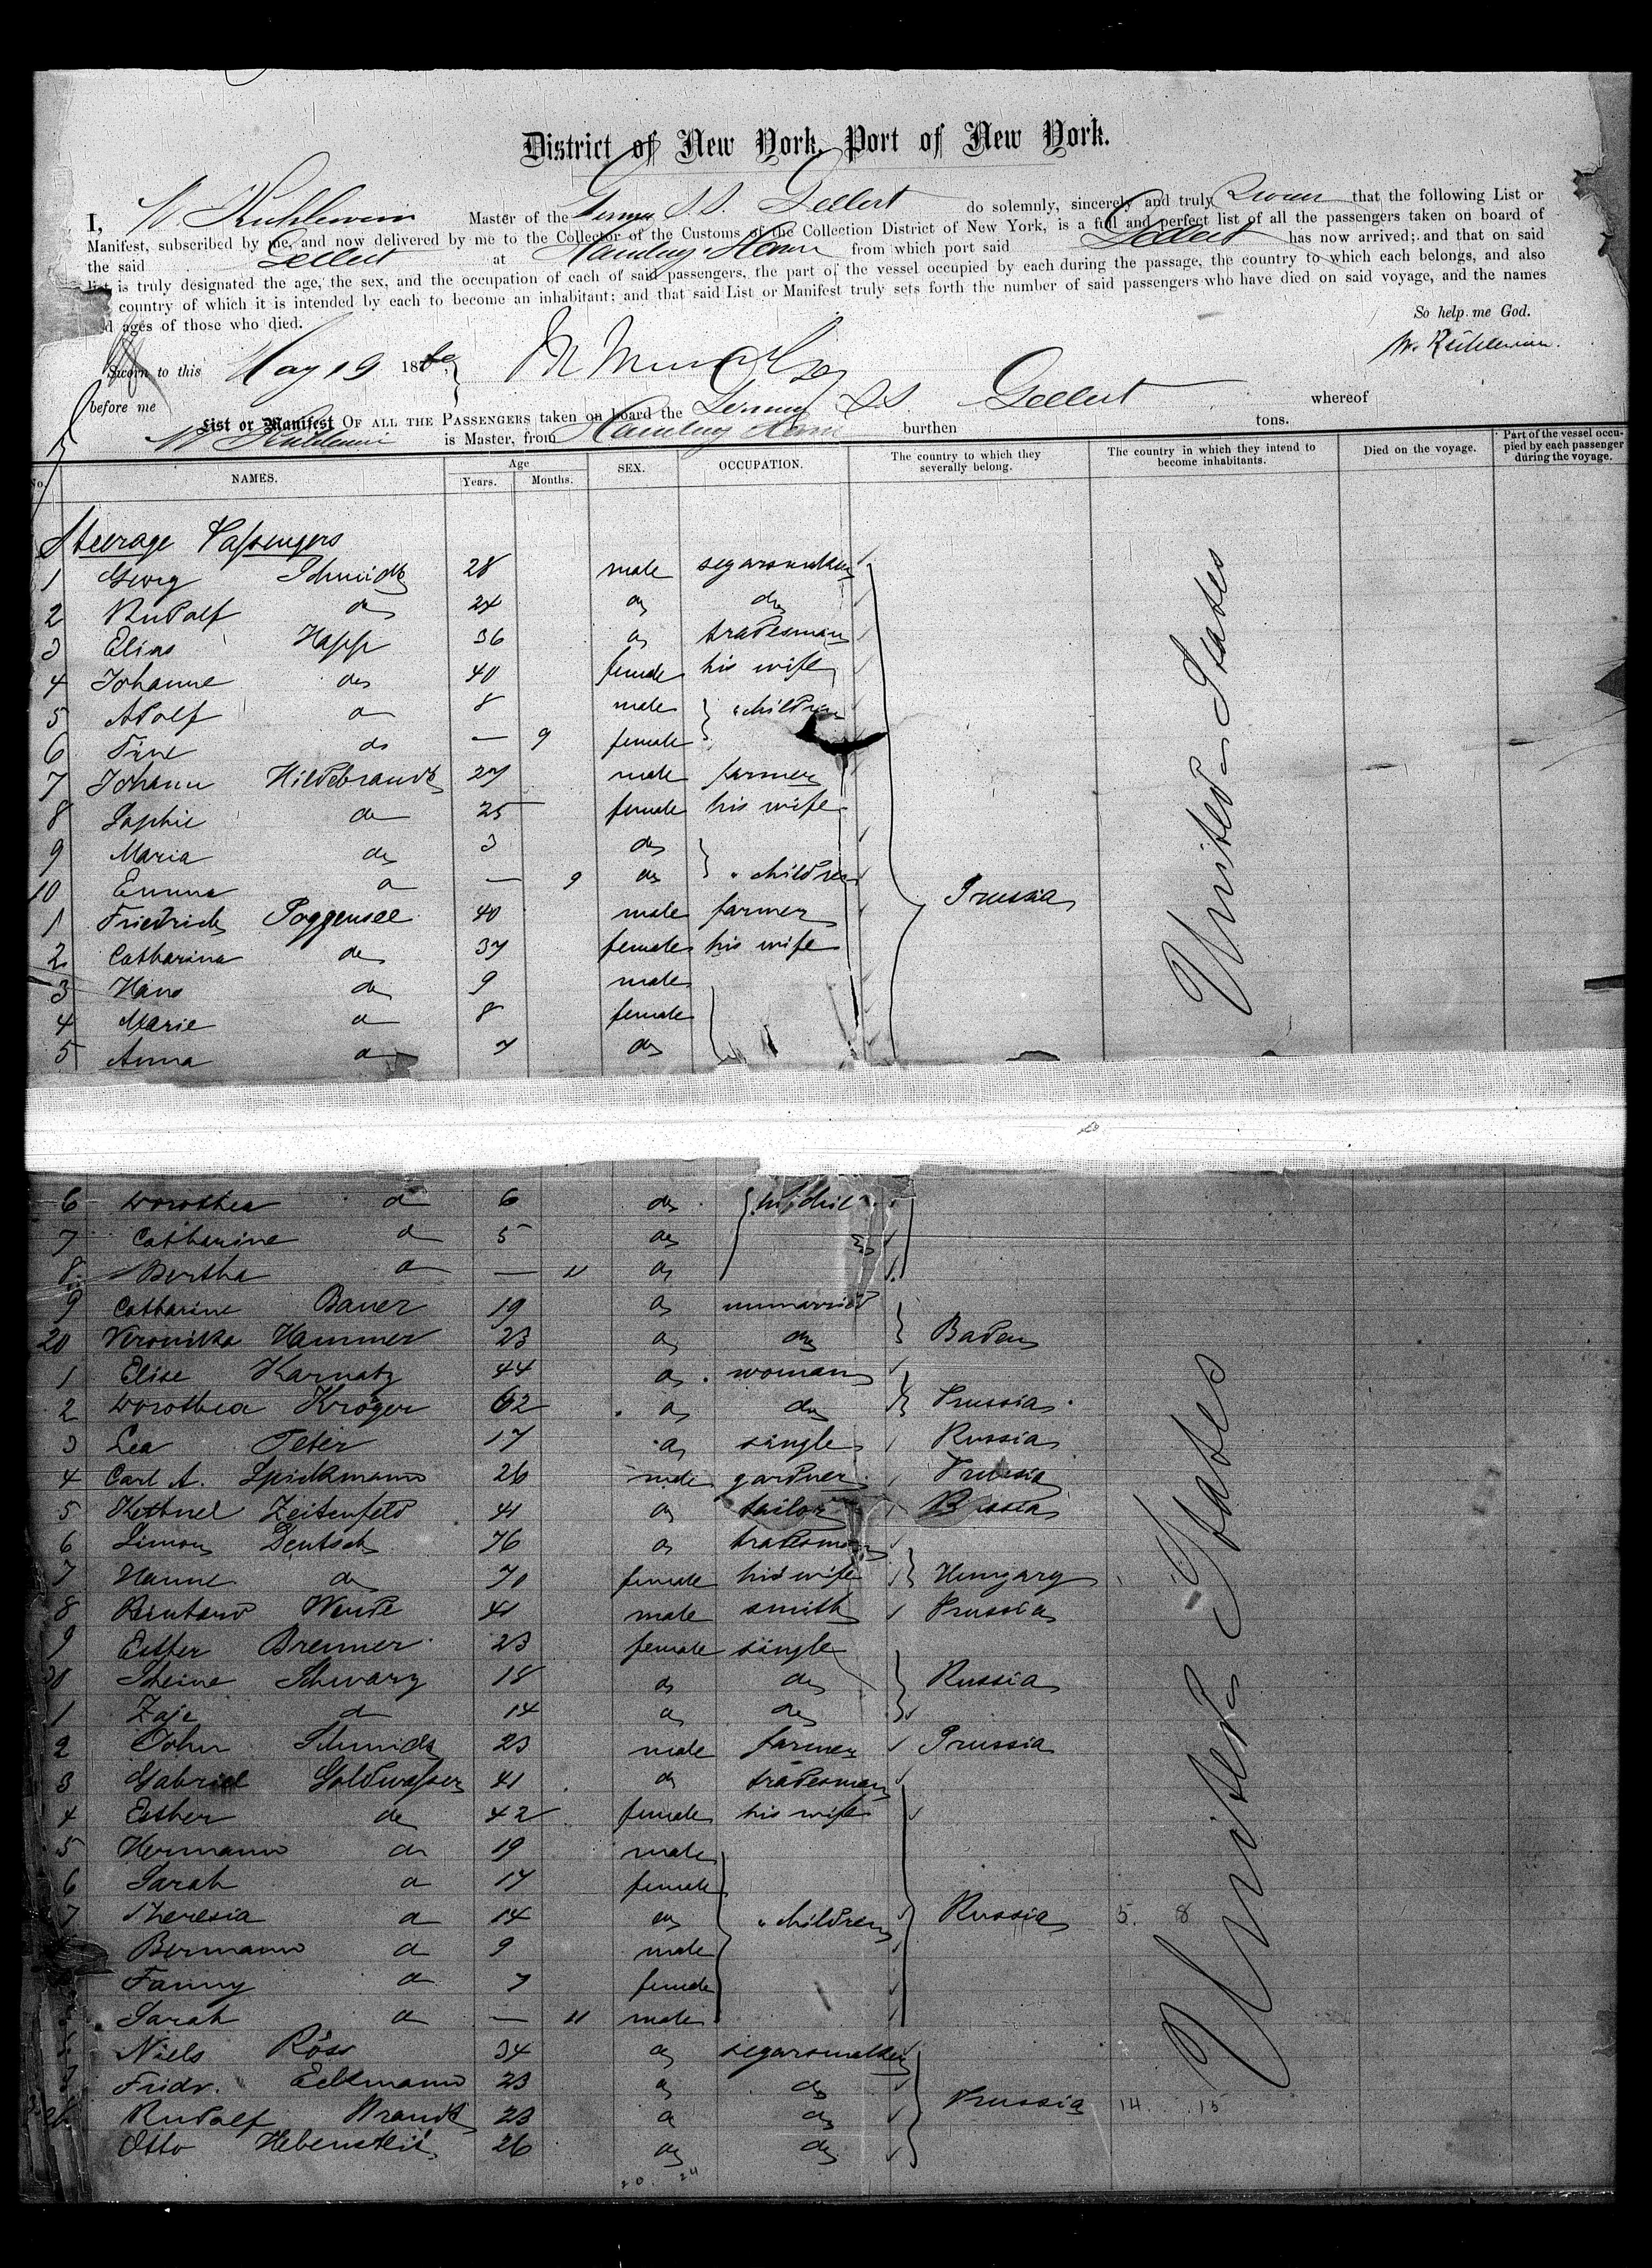 District of New York, Port of New York.
I, W. Kuhlewein Master of the German S.S. Gellert do solemnly, sincerely and truly Swear that the following List or
Manifest, subscribed by me, and now delivered by me to the Collector of the Customs of the Collection District of New York, is a full and perfect list of all the passengers taken on board of
the said Gellert at Hamburg, Havre from which port said Gellert has now arrived; and that on said
list is truly designated the age, the sex, and the occupation of each of said passengers, the part of the vessel occupied by each during the passage, the country to which each belongs, and also
country of which it is intended by each to become an inhabitant; and that said List or Manifest truly sets forth the number of said passengers who have died on said voyage, and the names
d ages of those who died.
So help me God.
W. Kühlewein.
Sworn to this May 19 18
before me
List or Manifest OF ALL THE PASSENGERS taken on board the German S.S. Gellert whereof
W Kuhlewein is Master, from Hamburg Havre burthen tons.
No. NAMES. Age Years. Months. SEX. OCCUPATION. The country to which they severally belong. The country in which they intend to become inhabitants. Died on the voyage. Part of the vessel occupied by each passenger during the voyage.
Steerage Passengers
1 Georg Schmidt 28 male segarsmaker
2 Rudolf do 24 do do
3 Elias Happ 36 do tradesman
4 Johanne do 40 female his wife
5 Adolf do 8 male children
6 Tine do — 9 female
7 Johann Hildebrandt 27 male farmer
8 Sophie do 25 female his wife
9 Maria do 3 do
10 Emma do — 9 do children
1 Friedrich Poggensee 40 male farmer Prussia
2 Catharina do 37 female his wife
3 Hans do 9 male
4 Marie do 8 female
5 Anna do 7 do
United States
6 Dorothea do 6 do
7 Catharine do 5 do
8 Bertha do — 11 do
9 Catharine Bauer 19 do unmarried
20 Veronika Hammer 23 do do Baden
1 Elise Karnatz 44 do woman
2 Dorothea Kröger 62 do do Prussia
3 Lea Peter 17 do single Russia
4 Carl A. Spickmann 26 male gardner Prussia
5 Zeitenfeld 41 do tailor
6 Simon Deutsch 76 do tradesman
7 Hanne do 70 female his wife Hungary
8 Wende 41 male smith Prussia
9 Esther Brenner 23 female single
30 Scheine Schwarz 18 do do Russia
1 Zaje do 14 do do
2 John Schmidt 23 male farmer Prussia
3 Gabriel Goldwasser 41 do tradesman
4 Esther do 42 female his wife
5 Hermann do 19 male
6 Sarah do 17 female
7 Theresia do 14 do children Russia 5. 8
Bermann do 9 male
Fanny do 7 female
Sarah do — 11 male
Niels Röss 34 do segarsmaker
Fridr. Eckmann 23 do do
Rudolf Brandt 23 do do Prussia 14. 15
Otto Hebenstreit 26 do do
United States
20. 24